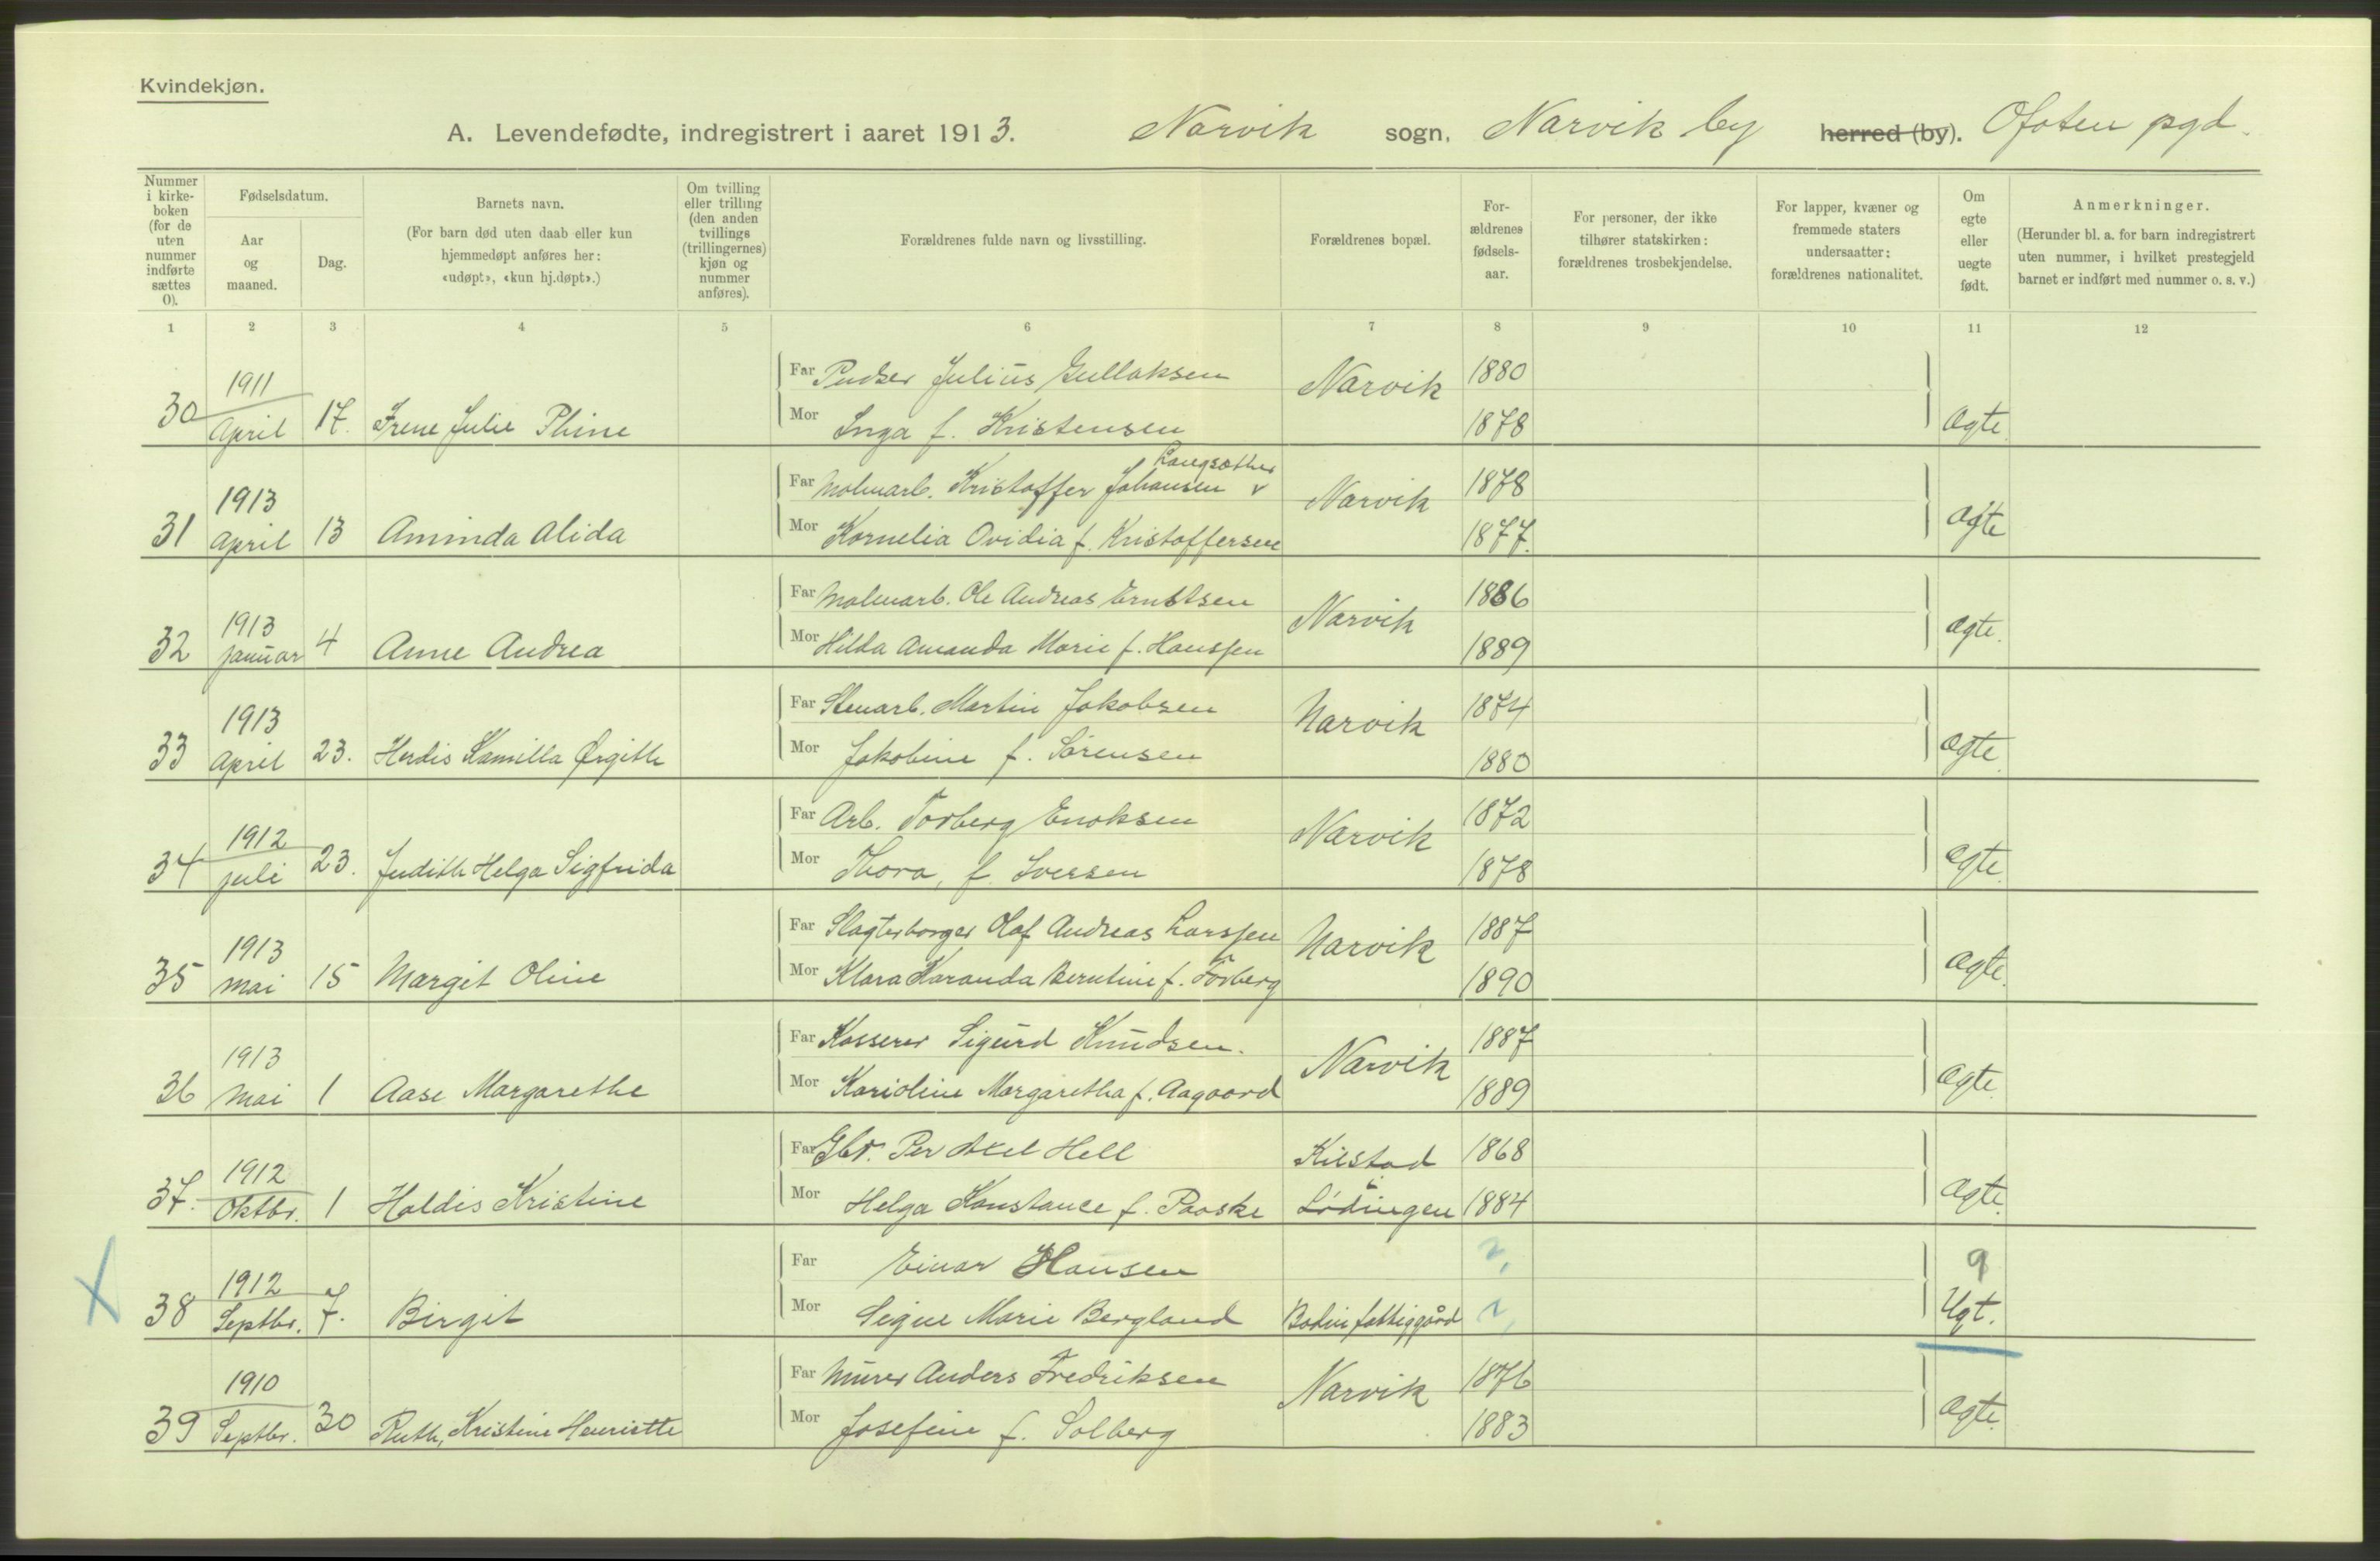 Kvindekjøn.
A. Levendefødte, indregistrert i aaret 1913. Narvik sogn, Narvik by herred (by). Ofoten pgd.
Nummer i kirke-boken (for de uten nummer indførte sættes 0).
Fødselsdatum.
Aar og maaned.
Dag.
Barnets navn.
(For barn død uten daab eller kun hjemmedøpt anføres her: «udøpt», «kun hj.døpt».)
Om tvilling eller trilling (den anden tvillings (trillingernes) kjøn og nummer anføres).
Forældrenes fulde navn og livsstilling.
Forældrenes bopæl.
For-ældrenes fødsels-aar.
For personer, der ikke tilhører statskirken: forældrenes trosbekjendelse.
For lapper, kvæner og fremmede staters undersaatter: forældrenes nationalitet.
Om egte eller uegte født.
Anmerkninger.
(Herunder bl. a. for barn indregistrert uten nummer, i hvilket prestegjeld barnet er indført med nummer o. s. v.)
1 2 3 4 5 6 7 8 9 10 11 12
1911 Far Pudser Julius Gullaksen Narvik 1880
30 April 17. Irene Julie Phine Mor Inga f. Kristensen 1878 Ægte
Langsæther
1913 Far Malmarb. Kristoffer Johansen v Narvik 1878
31 April 13 Aminda Alida Mor Kornelia Ovidia f. Kristoffersen 1877. Ægte
1913 Far Malmarb. Ole Andreas Ernstsen Narvik 1886
32 Januar 4 Anne Andrea Mor Hilda Amanda Marie f. Hanssen 1889 Ægte.
1913 Far Stenarb. Martin Jakobsen Narvik 1874
33 April 23. Herdis Kamilla Ørgith Mor Jakobine f. Sørensen 1880 Ægte.
1912 Far Arb. Torberg Enoksen Narvik 1872
34 Juli 23. Judith Helga Sigfrida Mor Thora, f. Iversen 1878 Ægte.
1913 Far Slagterborger Olaf Andreas Larssen Narvik 1887
35 Mai 15 Margit Oline Mor Klara Haranda Berntine f. Torberg 1890 Ægte.
1913 Far Kasserer Sigurd Knudsen. Narvik 1887
36 Mai 1 Aase Margarethe Mor Karioline Margaretha f. Aagaard 1889 Ægte.
1912 Far Gbr. Per Axel Hell Kilstad 1868
37. Oktbr. 1 Haldis Kristine Mor Helga Konstance f. Paaske Lødingen 1884 Ægte.
1912 Far Einar Hansen ?
38 Septbr. 7. Birgit Mor Signe Marie Bergland Bodin fattiggård ? Ugt.
1910 Far Murer Anders Fredriksen Narvik 1876
39 Septbr. 30 Ruth, Kristine Henriette Mor Josefine f. Solberg 1883 Ægte.